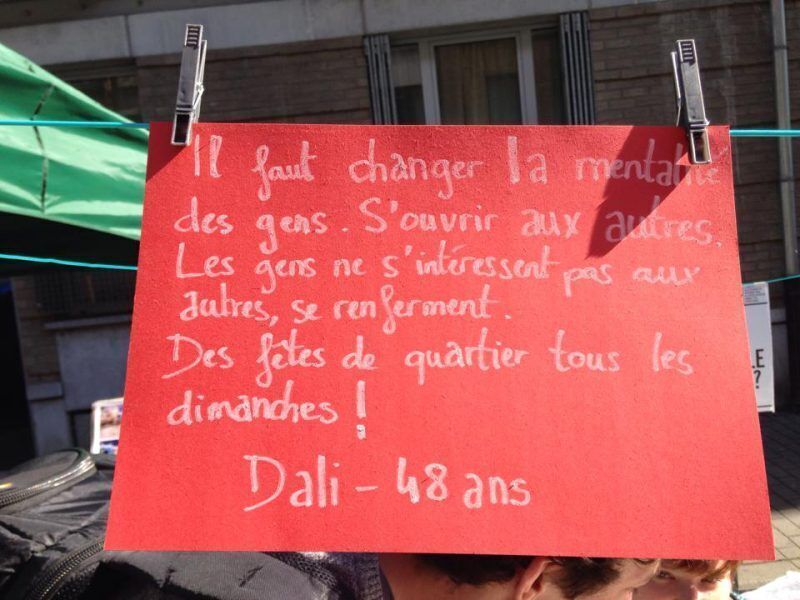 Il faut changer la mentalité
des gens. S'ouvrir aux autres.
Les gens ne s'intéressent pas aux
autres, se renferment.
Des fêtes de quartier tous les
dimanches !
Dali - 48 ans
LE
?